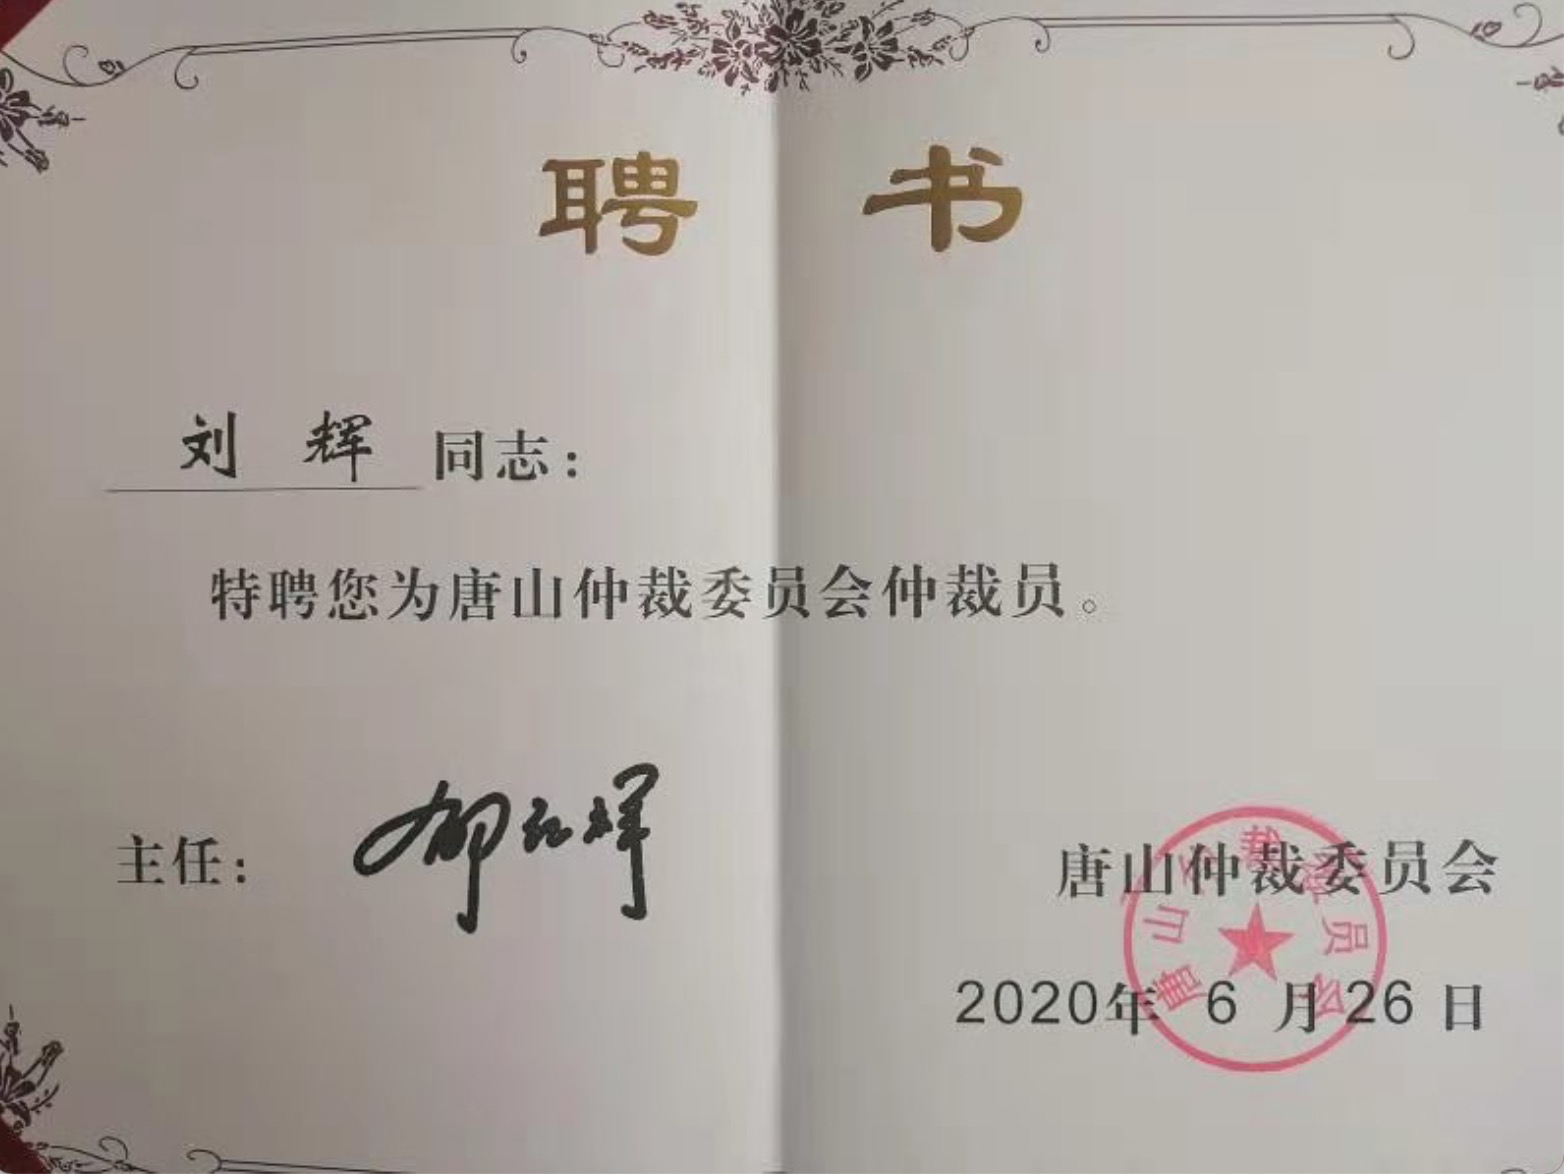 聘书
刘辉同志：
特聘您为唐山仲裁委员会仲裁员。
主任：
唐山仲裁委员会
2020年6月26日
唐山仲裁委员会